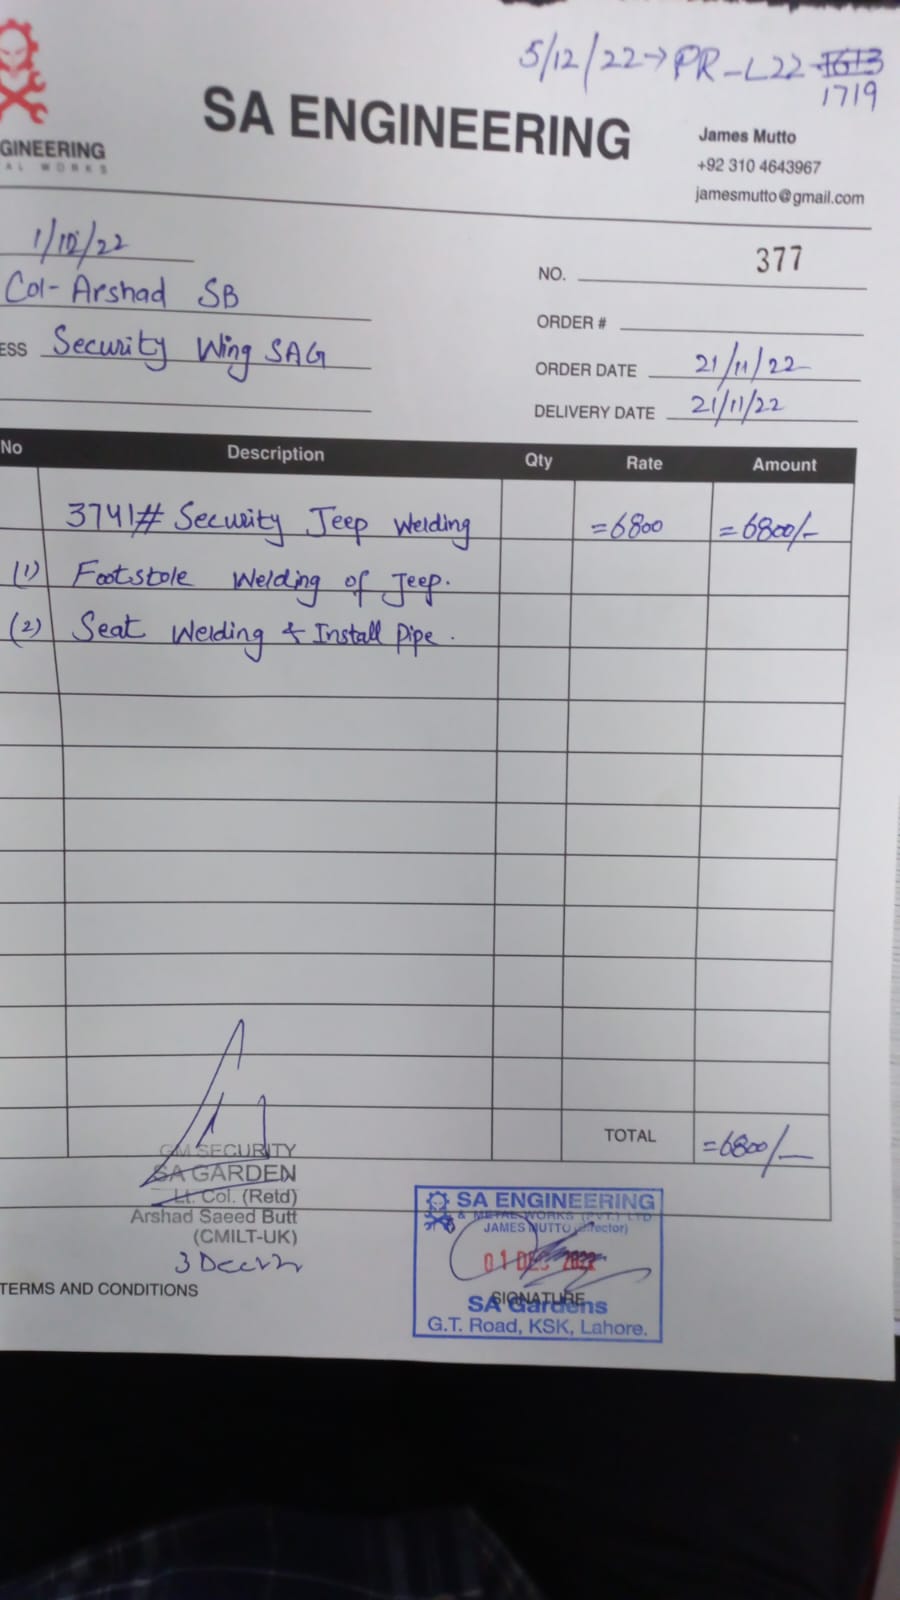 5/12/22→PR-L22-1613
1719
SA ENGINEERING
GINEERING
AL WORKS
James Mutto
+92 310 4643967
jamesmutto@gmail.com
1/12/22
NO. 377
Col-Arshad SB
ORDER #
ESS Security Wing SAG
ORDER DATE 21/11/22
DELIVERY DATE 21/11/22
No Description Qty Rate Amount
3741# Security Jeep Welding =6800 =6800/-
(1) Footstole Welding of Jeep.
(2) Seat Welding & Install Pipe.
TOTAL =6800/-
GM SECURITY
SA GARDEN
Lt. Col. (Retd)
Arshad Saeed Butt
(CMILT-UK)
3 Dec 22
TERMS AND CONDITIONS
SA ENGINEERING
& METAL WORKS (PVT.) LTD
JAMES MUTTO (Director)
01 DEC 2022
SIGNATURE
SA Gardens
G.T. Road, KSK, Lahore.